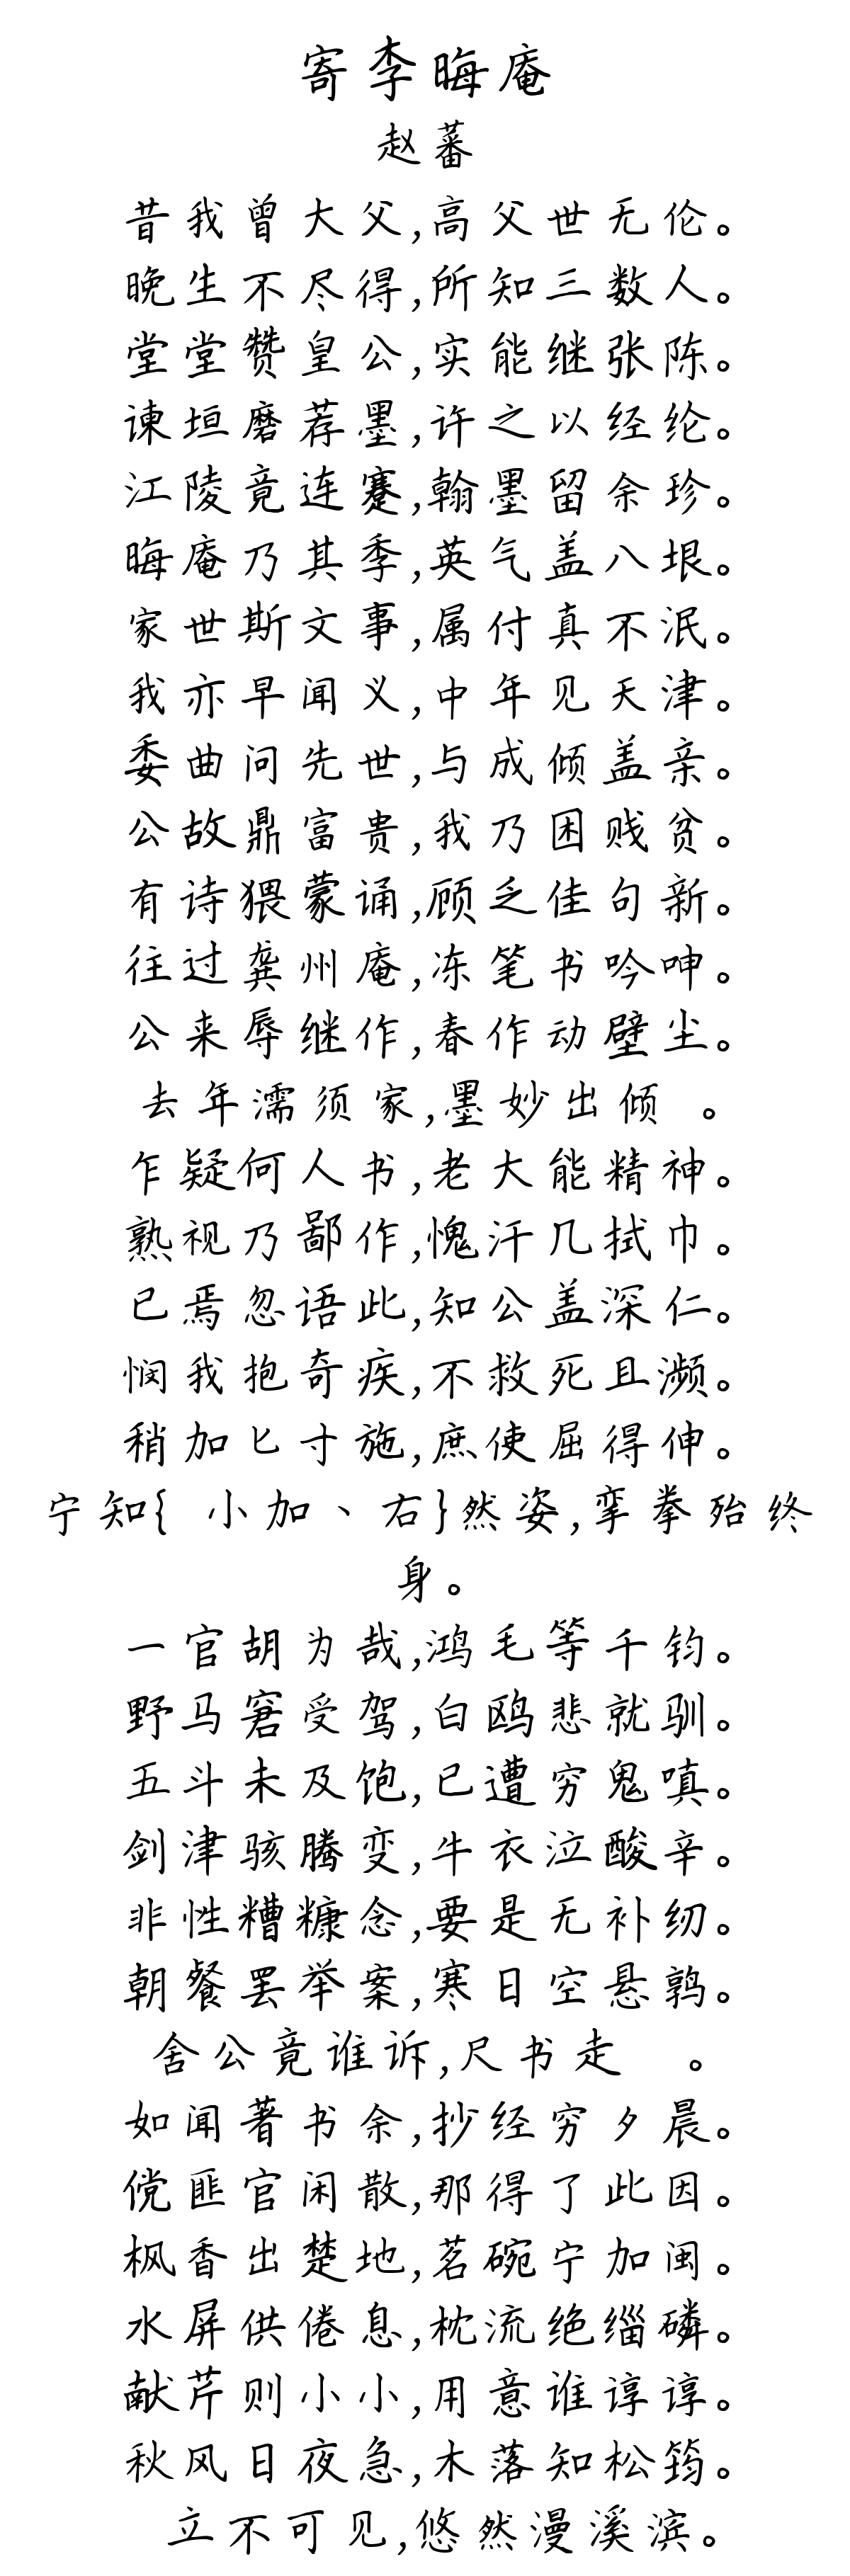 寄李晦庵
赵蕃
昔我曾大父,高父世无伦。
晚生不尽得,所知三数人。
堂堂赞皇公,实能继张陈。
谏垣磨荐墨,许之以经纶。
江陵竟连蹇,翰墨留余珍。
晦庵乃其季,英气盖八垠。
家世斯文事,属付真不泯。
我亦早闻义,中年见天津。
委曲问先世,与成倾盖亲。
公故鼎富贵,我乃困贱贫。
有诗猥蒙诵,顾乏佳句新。
往过龚州庵,冻笔书吟呻。
公来辱继作,春作动壁尘。
去年濡须家,墨妙出倾 。
乍疑何人书,老大能精神。
熟视乃鄙作,愧汗几拭巾。
已焉忽语此,知公盖深仁。
悯我抱奇疾,不救死且濒。
稍加匕寸施,庶使屈得伸。
宁知{ 小加丶右}然姿,挛拳殆终
身。
一官胡为哉,鸿毛等千钧。
野马窘受驾,白鸥悲就驯。
五斗未及饱,已遭穷鬼嗔。
剑津骇腾变,牛衣泣酸辛。
非性糟糠念,要是无补纫。
朝餐罢举案,寒日空悬鹑。
舍公竟谁诉,尺书走 。
如闻著书余,抄经穷夕晨。
傥匪官闲散,那得了此因。
枫香出楚地,茗碗宁加闽。
水屏供倦息,枕流绝缁磷。
献芹则小小,用意谁谆谆。
秋风日夜急,木落知松筠。
立不可见,悠然漫溪滨。